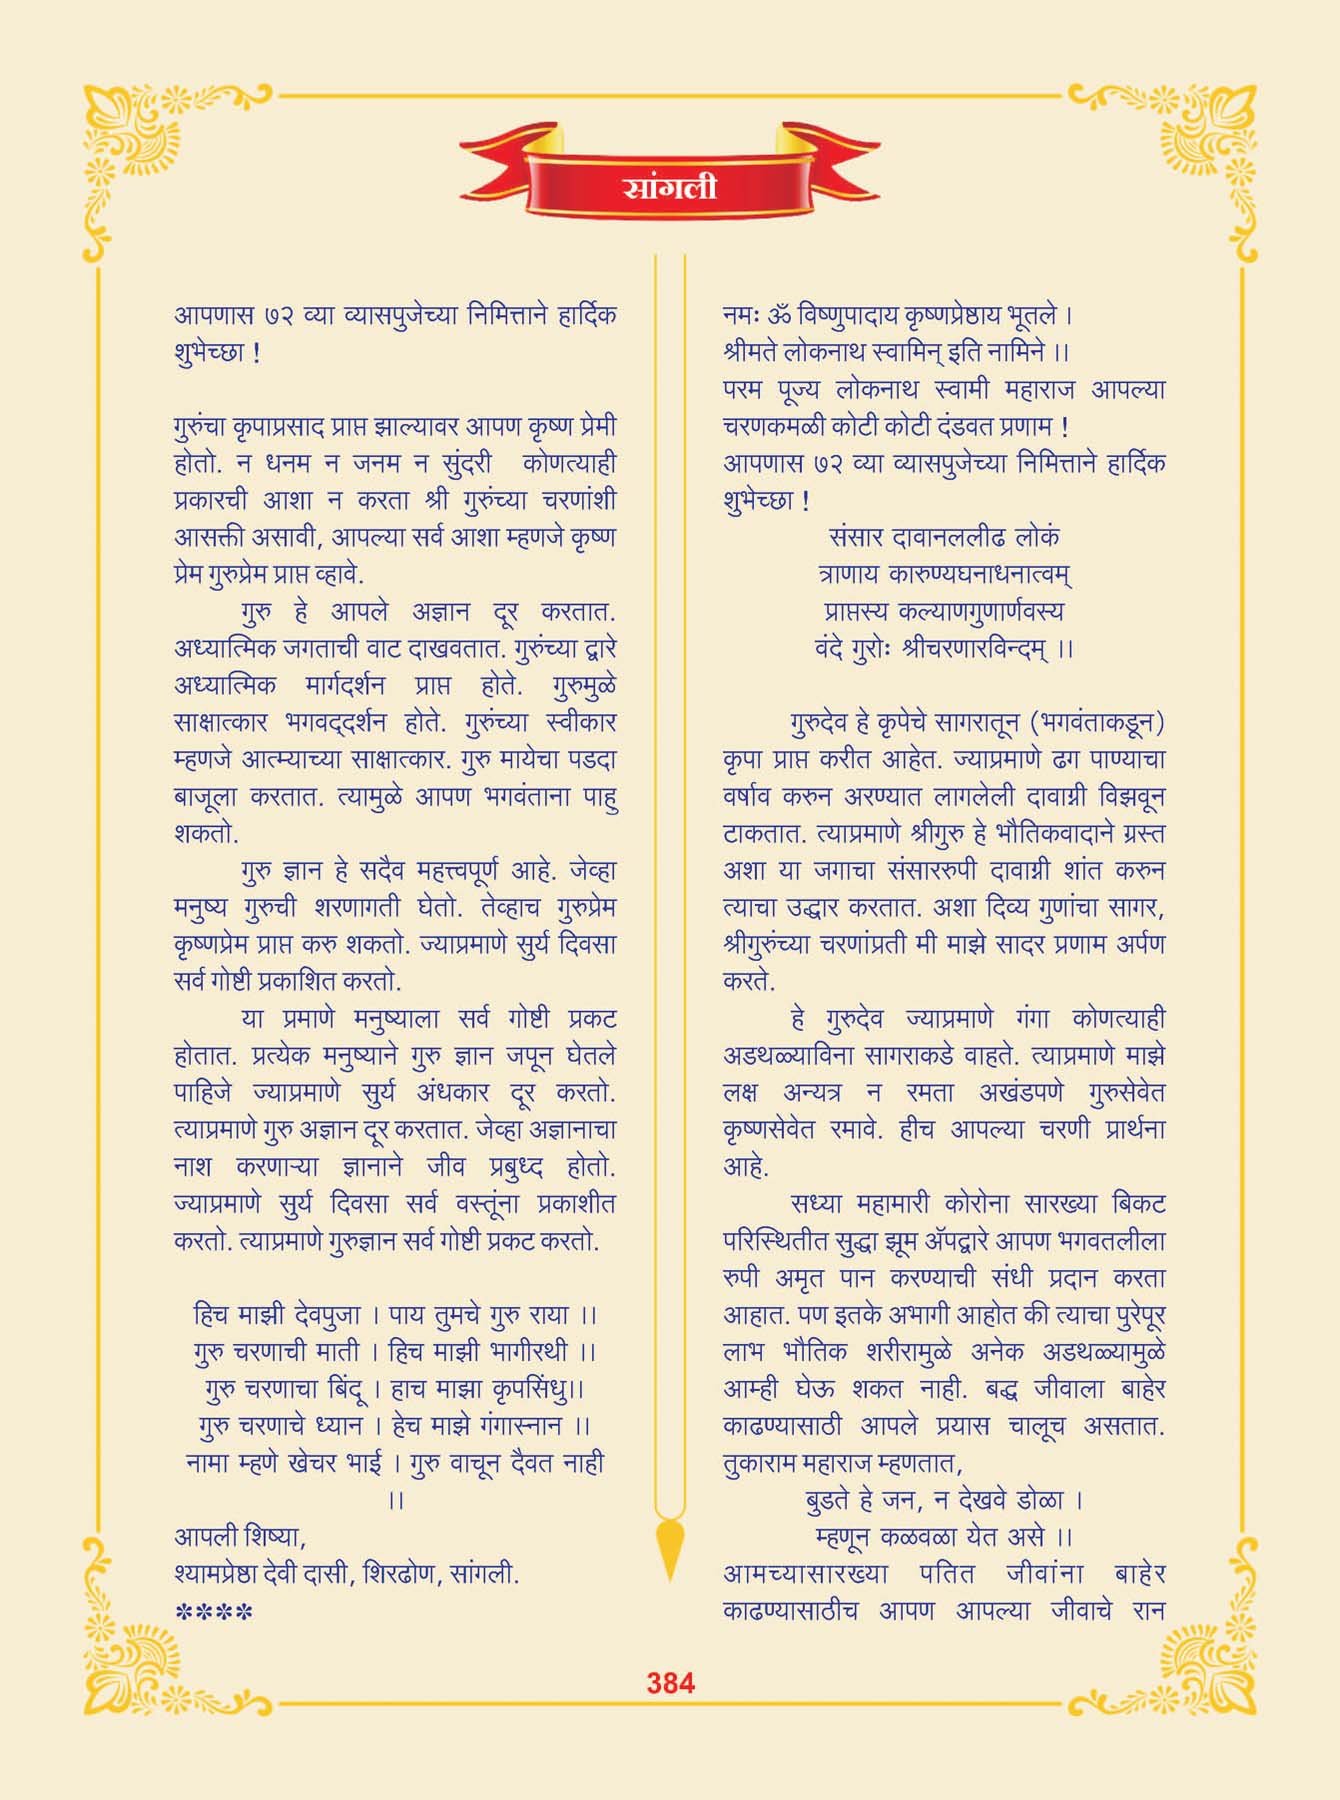 सांगली
आपणास ७२ व्या व्यासपुजेच्या निमित्ताने हार्दिक
शुभेच्छा !
गुरुंचा कृपाप्रसाद प्राप्त झाल्यावर आपण कृष्ण प्रेमी
होतो. न धनम न जनम न सुंदरी कोणत्याही
प्रकारची आशा न करता श्री गुरुंच्या चरणांशी
आसक्ती असावी, आपल्या सर्व आशा म्हणजे कृष्ण
प्रेम गुरुप्रेम प्राप्त व्हावे.
गुरु हे आपले अज्ञान दूर करतात.
अध्यात्मिक जगताची वाट दाखवतात. गुरुंच्या द्वारे
अध्यात्मिक मार्गदर्शन प्राप्त होते. गुरुमुळे
साक्षात्कार भगवद्‌दर्शन होते. गुरुंच्या स्वीकार
म्हणजे आत्म्याच्या साक्षात्कार. गुरु मायेचा पडदा
बाजूला करतात. त्यामुळे आपण भगवंताना पाहु
शकतो.
गुरु ज्ञान हे सदैव महत्त्वपूर्ण आहे. जेव्हा
मनुष्य गुरुची शरणागती घेतो. तेव्हाच गुरुप्रेम
कृष्णप्रेम प्राप्त करु शकतो. ज्याप्रमाणे सुर्य दिवसा
सर्व गोष्टी प्रकाशित करतो.
या प्रमाणे मनुष्याला सर्व गोष्टी प्रकट
होतात. प्रत्येक मनुष्याने गुरु ज्ञान जपून घेतले
पाहिजे ज्याप्रमाणे सुर्य अंधकार दूर करतो.
त्याप्रमाणे गुरु अज्ञान दूर करतात. जेव्हा अज्ञानाचा
नाश करणाऱ्या ज्ञानाने जीव प्रबुध्द होतो.
ज्याप्रमाणे सुर्य दिवसा सर्व वस्तूंना प्रकाशीत
करतो. त्याप्रमाणे गुरुज्ञान सर्व गोष्टी प्रकट करतो.
हिच माझी देवपुजा । पाय तुमचे गुरु राया ।।
गुरु चरणाची माती । हिच माझी भागीरथी ।।
गुरु चरणाचा बिंदू । हाच माझा कृपसिंधु।।
गुरु चरणाचे ध्यान । हेच माझे गंगास्नान ।।
नामा म्हणे खेचर भाई । गुरु वाचून दैवत नाही
।।
आपली शिष्या,
श्यामप्रेष्ठा देवी दासी, शिरढोण, सांगली.
****
नमः ॐ विष्णुपादाय कृष्णप्रेष्ठाय भूतले ।
श्रीमते लोकनाथ स्वामिन् इति नामिने ।।
परम पूज्य लोकनाथ स्वामी महाराज आपल्या
चरणकमळी कोटी कोटी दंडवत प्रणाम !
आपणास ७२ व्या व्यासपुजेच्या निमित्ताने हार्दिक
शुभेच्छा !
संसार दावानललीढ लोकं
त्राणाय कारुण्यघनाधनात्वम्
प्राप्तस्य कल्याणगुणार्णवस्य
वंदे गुरोः श्रीचरणारविन्दम् ।।
गुरुदेव हे कृपेचे सागरातून (भगवंताकडून)
कृपा प्राप्त करीत आहेत. ज्याप्रमाणे ढग पाण्याचा
वर्षाव करुन अरण्यात लागलेली दावाग्नी विझवून
टाकतात. त्याप्रमाणे श्रीगुरु हे भौतिकवादाने ग्रस्त
अशा या जगाचा संसाररुपी दावाग्नी शांत करुन
त्याचा उद्धार करतात. अशा दिव्य गुणांचा सागर,
श्रीगुरुंच्या चरणांप्रती मी माझे सादर प्रणाम अर्पण
करते.
हे गुरुदेव ज्याप्रमाणे गंगा कोणत्याही
अडथळ्याविना सागराकडे वाहते. त्याप्रमाणे माझे
लक्ष अन्यत्र न रमता अखंडपणे गुरुसेवेत
कृष्णसेवेत रमावे. हीच आपल्या चरणी प्रार्थना
आहे.
सध्या महामारी कोरोना सारख्या बिकट
परिस्थितीत सुद्धा झूम ॲपद्वारे आपण भगवतलीला
रुपी अमृत पान करण्याची संधी प्रदान करता
आहात. पण इतके अभागी आहोत की त्याचा पुरेपूर
लाभ भौतिक शरीरामुळे अनेक अडथळ्यामुळे
आम्ही घेऊ शकत नाही. बद्ध जीवाला बाहेर
काढण्यासाठी आपले प्रयास चालूच असतात.
तुकाराम महाराज म्हणतात,
बुडते हे जन, न देखवे डोळा ।
म्हणून कळवळा येत असे ।।
आमच्यासारख्या पतित जीवांना बाहेर
काढण्यासाठीच आपण आपल्या जीवाचे रान
384